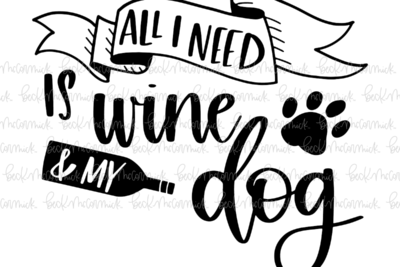 ALL I NEED
IS wine
& MY dog